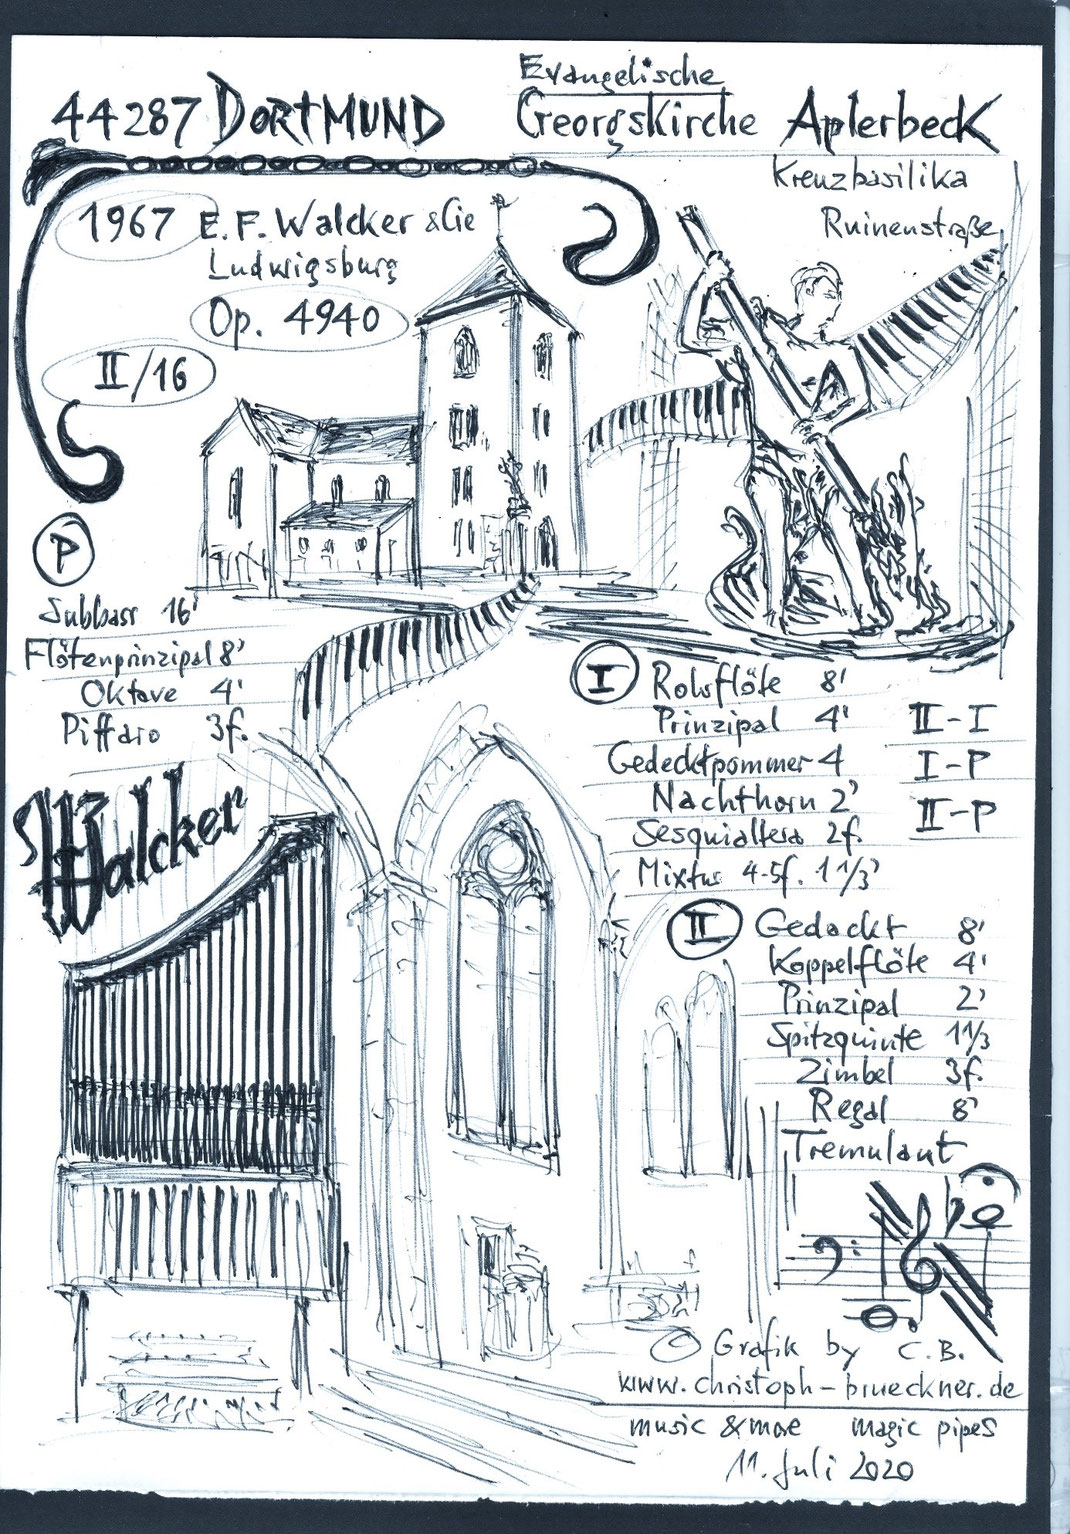 44287 DORTMUND
Evangelische
Georgskirche Aplerbeck
Kreuzbasilika
Ruinenstraße
1967 E.F. Walcker & Cie
Ludwigsburg
Op. 4940
II/16
P
Subbass 16'
Flötenprinzipal 8'
Oktave 4'
Piffaro 3f.
Walcker
I Rohrflöte 8'
Prinzipal 4'
Gedecktpommer 4
Nachthorn 2'
Sesquialtera 2f.
Mixtur 4-5f. 1 1/3'
II-I
I-P
II-P
II Gedackt 8'
Koppelflöte 4'
Prinzipal 2'
Spitzquinte 1 1/3
Zimbel 3f.
Regal 8'
Tremulant
© Grafik by C.B.
www.christoph-brueckner.de
music & more magic pipes
11. Juli 2020